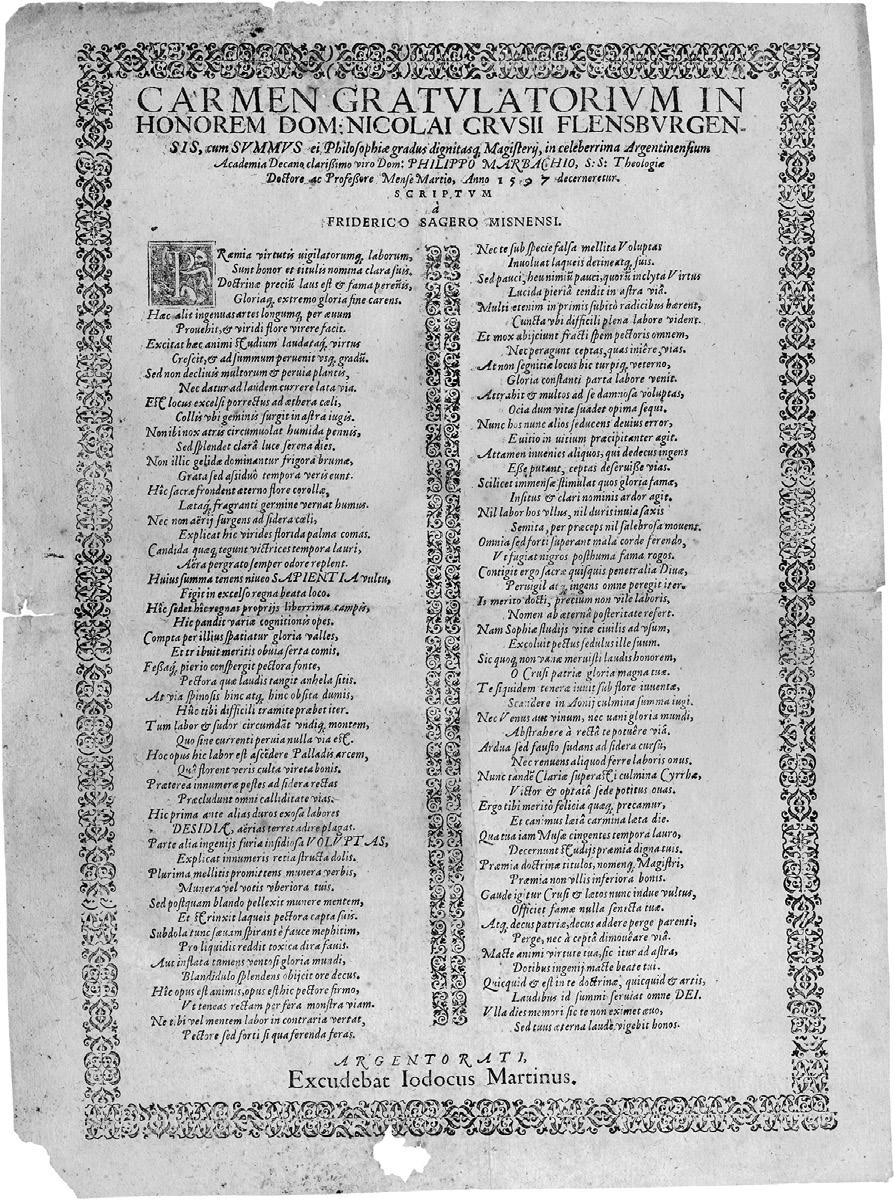 CARMEN GRATVLATORIVM IN
HONOREM DOM: NICOLAI CRVSII FLENSBVRGEN-
SIS, cum SVMMVS ei Philosophiæ gradus dignitasq́; Magisterij, in celeberrima Argentinensium
Academia Decano clarißimo viro Dom: PHILIPPO MARBACHIO, S.S: Theologiæ
Doctore ac Profeßore Mense Martio, Anno 1597 decerneretur.
SCRIPTVM
à
FRIDERICO SAGERO MISNENSI.
PRæmia virtutis uigilatorumq́; laborum,
Sunt honor et titulis nomina clara suis.
Doctrinæ preciũ laus est & fama perẽnis,
Gloriaq́; extremo gloria fine carens.
Hæc alit ingenuas artes longumq́; per æuum
Prouehit, & viridi flore virere facit.
Excitat hæc animi studium laudataq́; virtus
Crescit, & ad summum peruenit vsq́; gradũ.
Sed non decliuis multorum & peruia plantis,
Nec datur ad laudem currere lata via.
Est locus excelsi porrectus ad æthera cœli,
Collis vbi geminis surgit in astra iugis.
Non ibi nox atris circumuolat humida pennis,
Sed splendet clarâ luce serena dies.
Non illic gelidæ dominantur frigora brumæ,
Grata sed aßiduò tempora veris eunt.
Hîc sacræ frondent æterno flore corollæ,
Lætaq́; fragranti germine vernat humus.
Nec non aërij surgens ad sidera cœli,
Explicat hic virides florida palma comas.
Candida quæq́; tegunt victrices tempora lauri,
Aëra pergrato semper odore replent.
Huius summa tenens niueo SAPIENTIA vultu,
Figit in excelso regna beata loco.
Hîc sedet hîc regnat proprijs liberrima campis,
Hîc pandit variæ cognitionis opes.
Compta per illius spatiatur gloria valles,
Et tribuit meritis obuia serta comis.
Feßaq́; pierio conspergit pectora fonte,
Pectora quæ laudis tangit anhela sitis.
At via spinosis hinc atq́; hinc obsita dumis,
Hûc tibi difficili tramite præbet iter.
Tum labor & sudor circumdãt vndiq́; montem,
Quo sine currenti peruia nulla via est.
Hoc opus hic labor est ascẽdere Palladis arcem,
Quâ florent veris culta vireta bonis.
Præterea innumeræ pestes ad sidera rectas
Præcludunt omni calliditate vias.
Hîc prima ante alias duros exosa labores
DESIDIA, aërias terret adire plagas.
Parte alia ingenijs furia insidiosa VOLVPTAS,
Explicat innumeris retia structa dolis.
Plurima mellitis promittens munera verbis,
Munera vel votis vberiora tuis.
Sed postquam blando pellexit munere mentem,
Et strinxit laqueis pectora capta suis.
Subdola tunc sæuam spirans è fauce mephitim,
Pro liquidis reddit toxica dira fauis.
Aut inflata tumens ventosi gloria mundi,
Blandidulo splendens obijcit ore decus.
Hîc opus est animis, opus est hîc pectore firmo,
Vt teneas rectam per fera monstra viam.
Ne tibi vel mentem labor in contraria vertat,
Pectore sed forti si qua ferenda feras.
Nec te sub specie falsa mellita Voluptas
Inuoluat laqueis detineatq́; suis.
Sed pauci, heu nimiũ pauci, quorũ inclyta Virtus
Lucida pieriâ tendit in astra viâ.
Multi etenim in primis subitò radicibus hærent,
Cuncta vbi difficili plena labore vident.
Et mox abijciunt fracti spem pectoris omnem,
Nec peragunt ceptas, quas iniêre, vias.
At non segnitiæ locus hic turpiq́; veterno,
Gloria constanti parta labore venit.
Attrahit & multos ad se damnosa voluptas,
Ocia dum vitæ suadet opima sequi.
Nunc hos nunc alios seducens deuius error,
E uitio in uitium præcipitanter agit.
Attamen inuenies aliquos, qui dedecus ingens
Eße putant, ceptas deseruiße vias.
Scilicet immensæ stimulat quos gloria famæ,
Insitus & clari nominis ardor agit.
Nil labor hos vllus, nil duris inuia saxis
Semita, per præceps nil salebrosa mouent.
Omnia sed forti superant mala corde ferendo,
Vt fugiat nigros posthuma fama rogos.
Contigit ergo sacræ quisquis penetralia Diuæ,
Peruigil atq́; ingens omne peregit iter.
Is meritò docti, precium non vile laboris,
Nomen ab æternâ posteritate refert.
Nam Sophiæ studijs vitæ ciuilis ad vsum,
Excoluit pectus sedulus ille suum.
Sic quoq́; non vanæ meruisti laudis honorem,
O Crusi patriæ gloria magna tuæ.
Te siquidem teneræ iuuit sub flore iuuentæ,
Scandere in Aonij culmina summa iugi.
Nec Venus aut vinum, nec uani gloria mundi,
Abstrahere à rectâ te potuêre viâ.
Ardua sed fausto sudans ad sidera cursu,
Nec renuens aliquod ferre laboris onus.
Nunc tandẽ Clariæ superasti culmina Cyrrhæ,
Victor & optatâ sede potitus ouas.
Ergo tibi meritò felicia quæq́; precamur,
Et canimus lætâ carmina læta die.
Qua tua iam Musæ cingentes tempora lauro,
Decernunt studijs præmia digna tuis.
Præmia doctrinæ titulos, nomenq́; Magistri,
Præmia non vllis inferiora bonis.
Gaude igitur Crusi & lætos nunc indue vultus,
Officiet famæ nulla senecta tuæ.
Atq́; decus patriæ, decus addere perge parenti,
Perge, nec à ceptâ dimouêare viâ.
Macte animi virtute tua, sic itur ad astra,
Dotibus ingenij macte beate tui.
Quicquid & est in te doctrinæ, quicquid & artis,
Laudibus id summi seruiat omne DEI.
Vlla dies memori sic te non eximet æuo,
Sed tuus æterna laude vigebit honos.
ARGENTORATI,
Excudebat Iodocus Martinus.